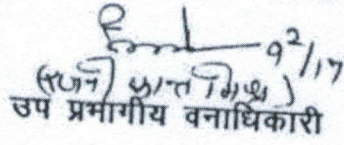 9²/17
(रजनी कान्त मिश्र)
उप प्रभागीय वनाधिकारी